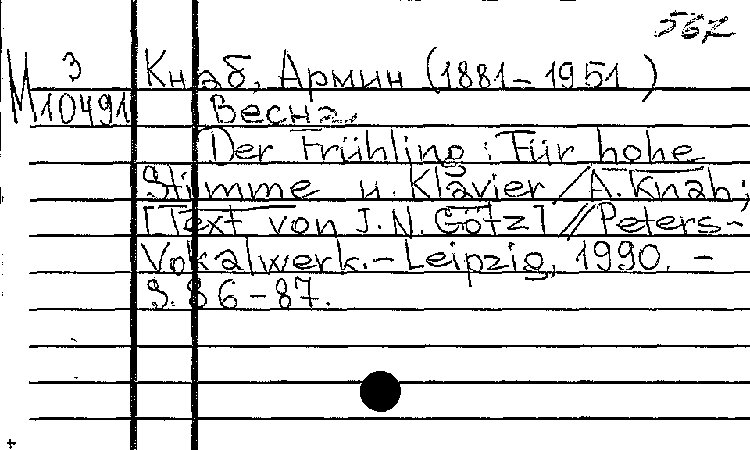 562
М 3 10491
Кнаб, Армин (1881-1951)
Весна.
Der Frühling : Für hohe
Stimme u. Klavier / A. Knab;
[Text von J. N. Götz] // Peters-
Vokalwerk.- Leipzig, 1990. -
S. 86-87.